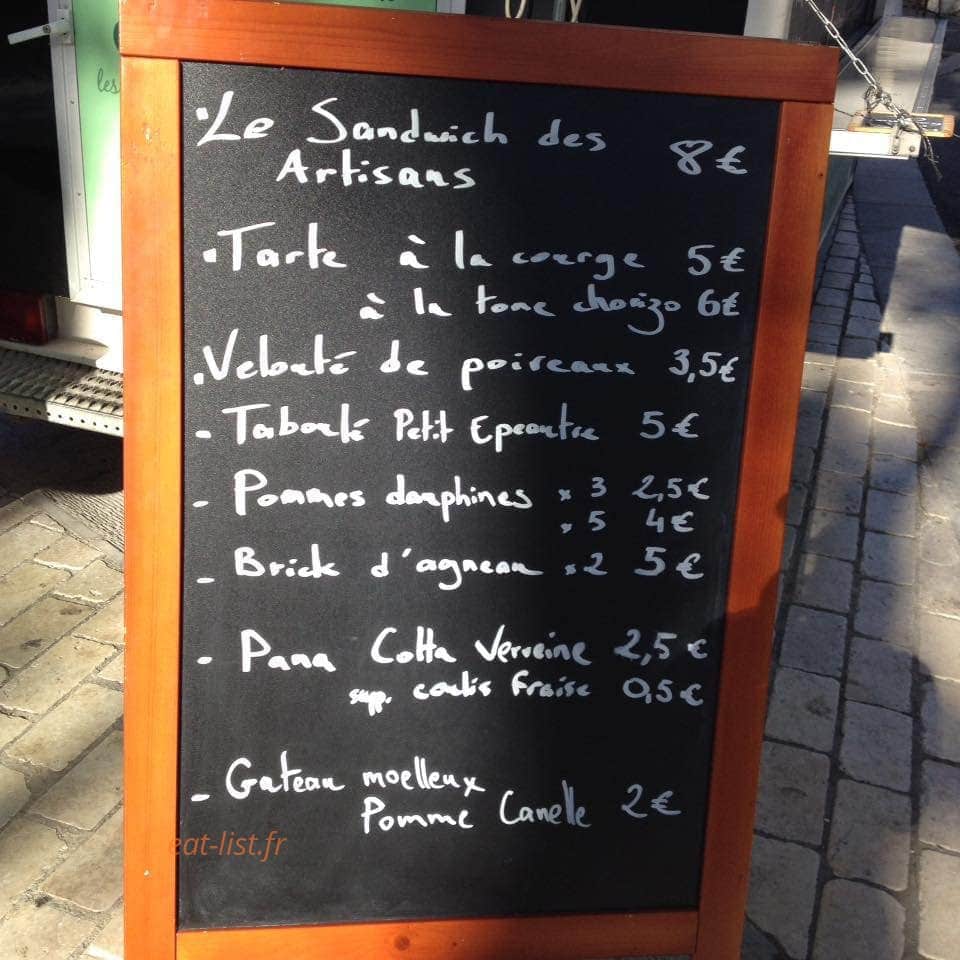 les
Le Sandwich des
Artisans 8€
Tarte à la courge 5€
à la tome chorizo 6€
Velouté de poireaux 3,5€
- Taboulé Petit Epeautre 5€
- Pommes dauphines x 3 2,5€
x 5 4€
- Brick d'agneau x2 5€
- Pana Cotta Verveine 2,5€
supp. coulis fraise 0,5€
- Gateau moelleux
Pomme Canelle 2€
eat-list.fr